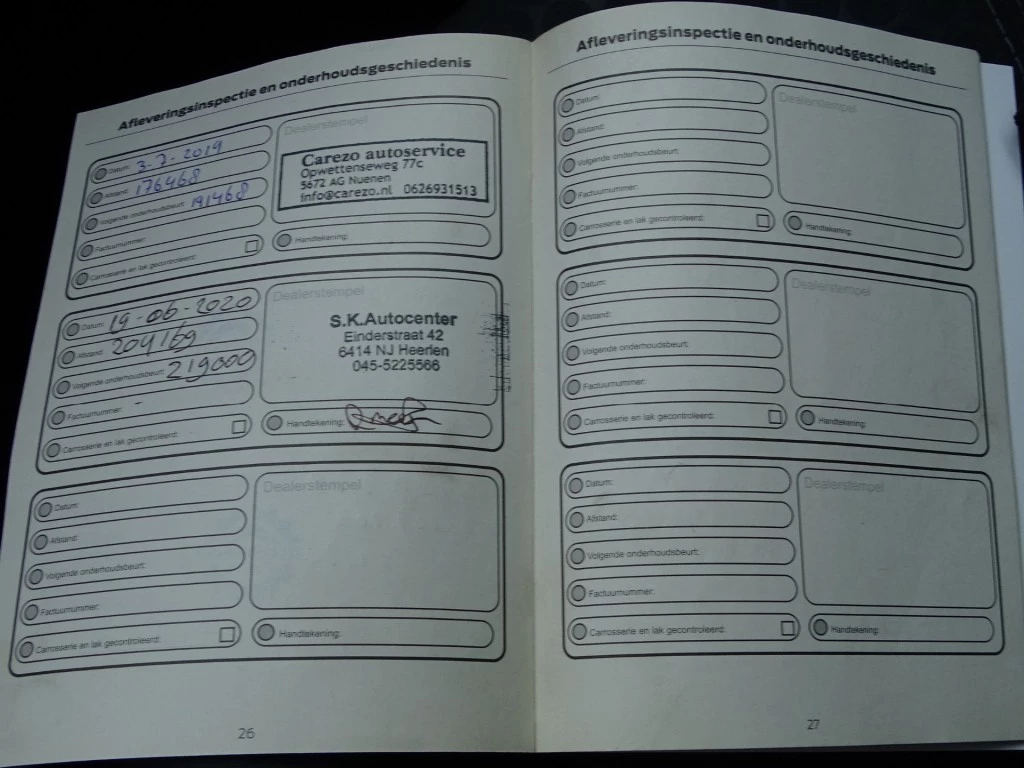 Afleveringsinspectie en onderhoudsgeschiedenis
Datum: 3-7-2019
Afstand: 176468
Volgende onderhoudsbeurt: 191468
Factuurnummer:
Carrosserie en lak gecontroleerd:
Dealerstempel
Carezo autoservice
Opwettenseweg 77c
5672 AG Nuenen
info@carezo.nl 0626931513
Handtekening:
Datum: 19-06-2020
Afstand: 204169
Volgende onderhoudsbeurt: 219000
Factuurnummer: -
Carrosserie en lak gecontroleerd:
Dealerstempel
S.K.Autocenter
Einderstraat 42
6414 NJ Heerlen
045-5225566
Handtekening:
Datum:
Afstand:
Volgende onderhoudsbeurt:
Factuurnummer:
Carrosserie en lak gecontroleerd:
Dealerstempel
Handtekening:
26
Afleveringsinspectie en onderhoudsgeschiedenis
Datum:
Afstand:
Volgende onderhoudsbeurt:
Factuurnummer:
Carrosserie en lak gecontroleerd:
Dealerstempel
Handtekening:
Datum:
Afstand:
Volgende onderhoudsbeurt:
Factuurnummer:
Carrosserie en lak gecontroleerd:
Dealerstempel
Handtekening:
Datum:
Afstand:
Volgende onderhoudsbeurt:
Factuurnummer:
Carrosserie en lak gecontroleerd:
Dealerstempel
Handtekening:
27